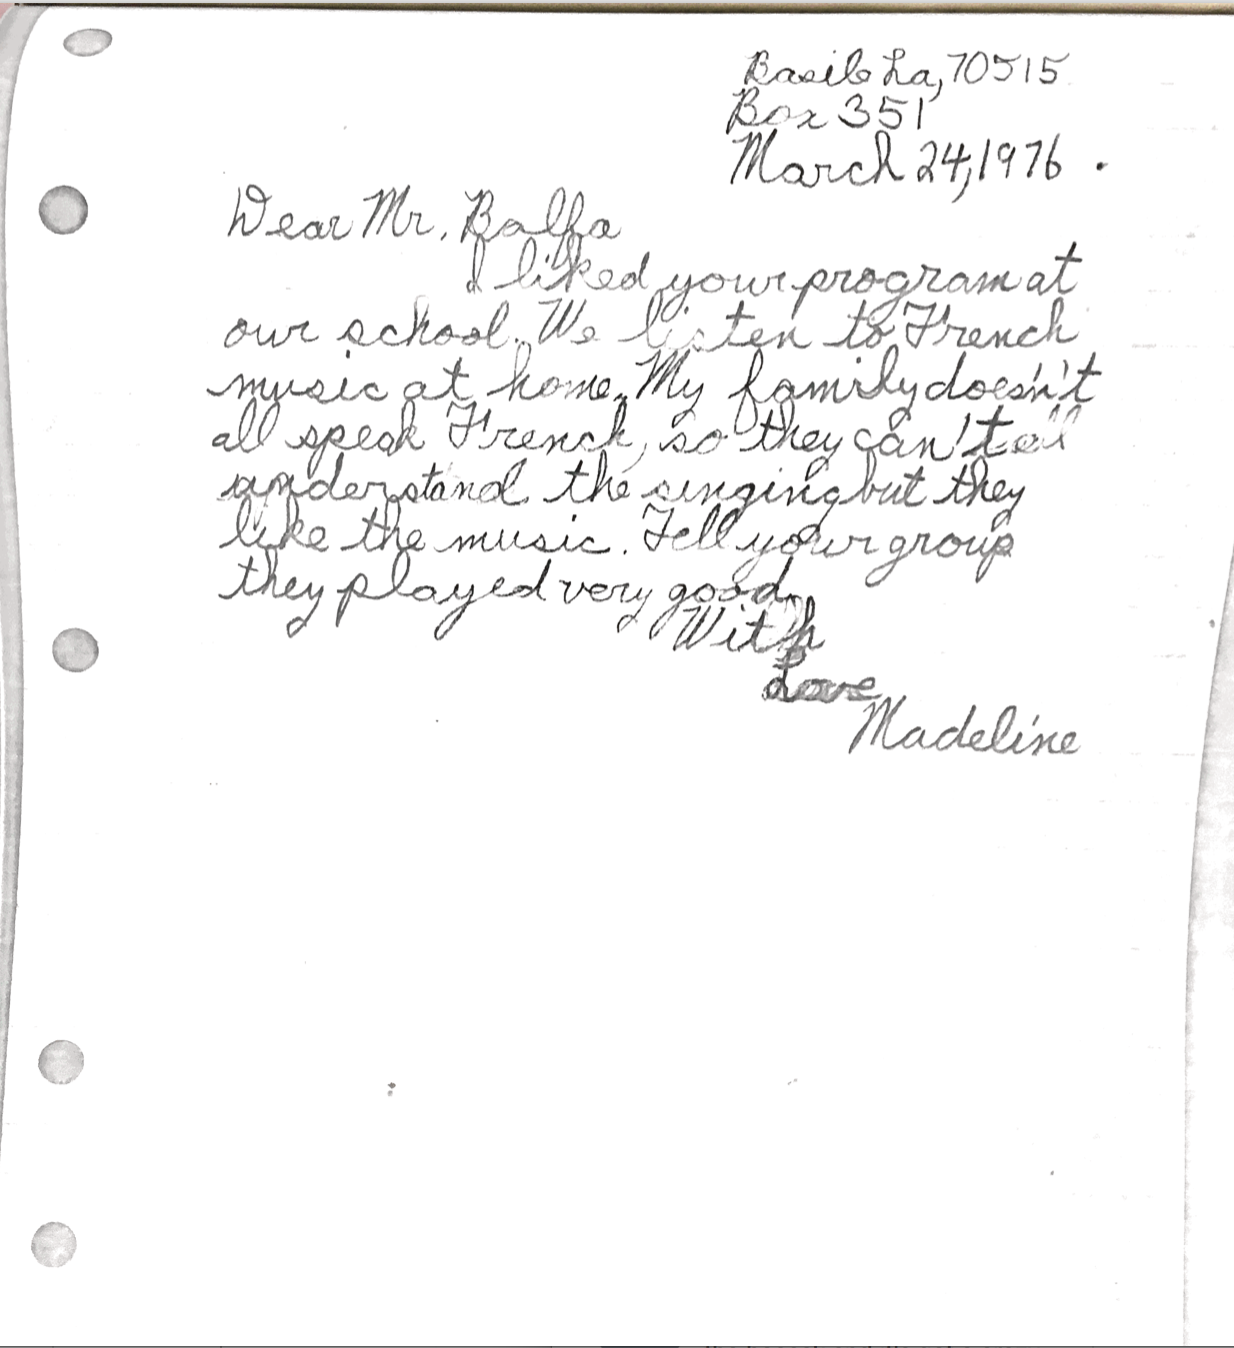 Basile La, 70515
Box 351
March 24, 1976
Dear Mr. Balfa
I liked your program at
our school. We listen to French
music at home. My family doesn't
all speak French, so they can't all
understand the singing but they
like the music. Tell your group
they played very good.
With
Love
Madeline